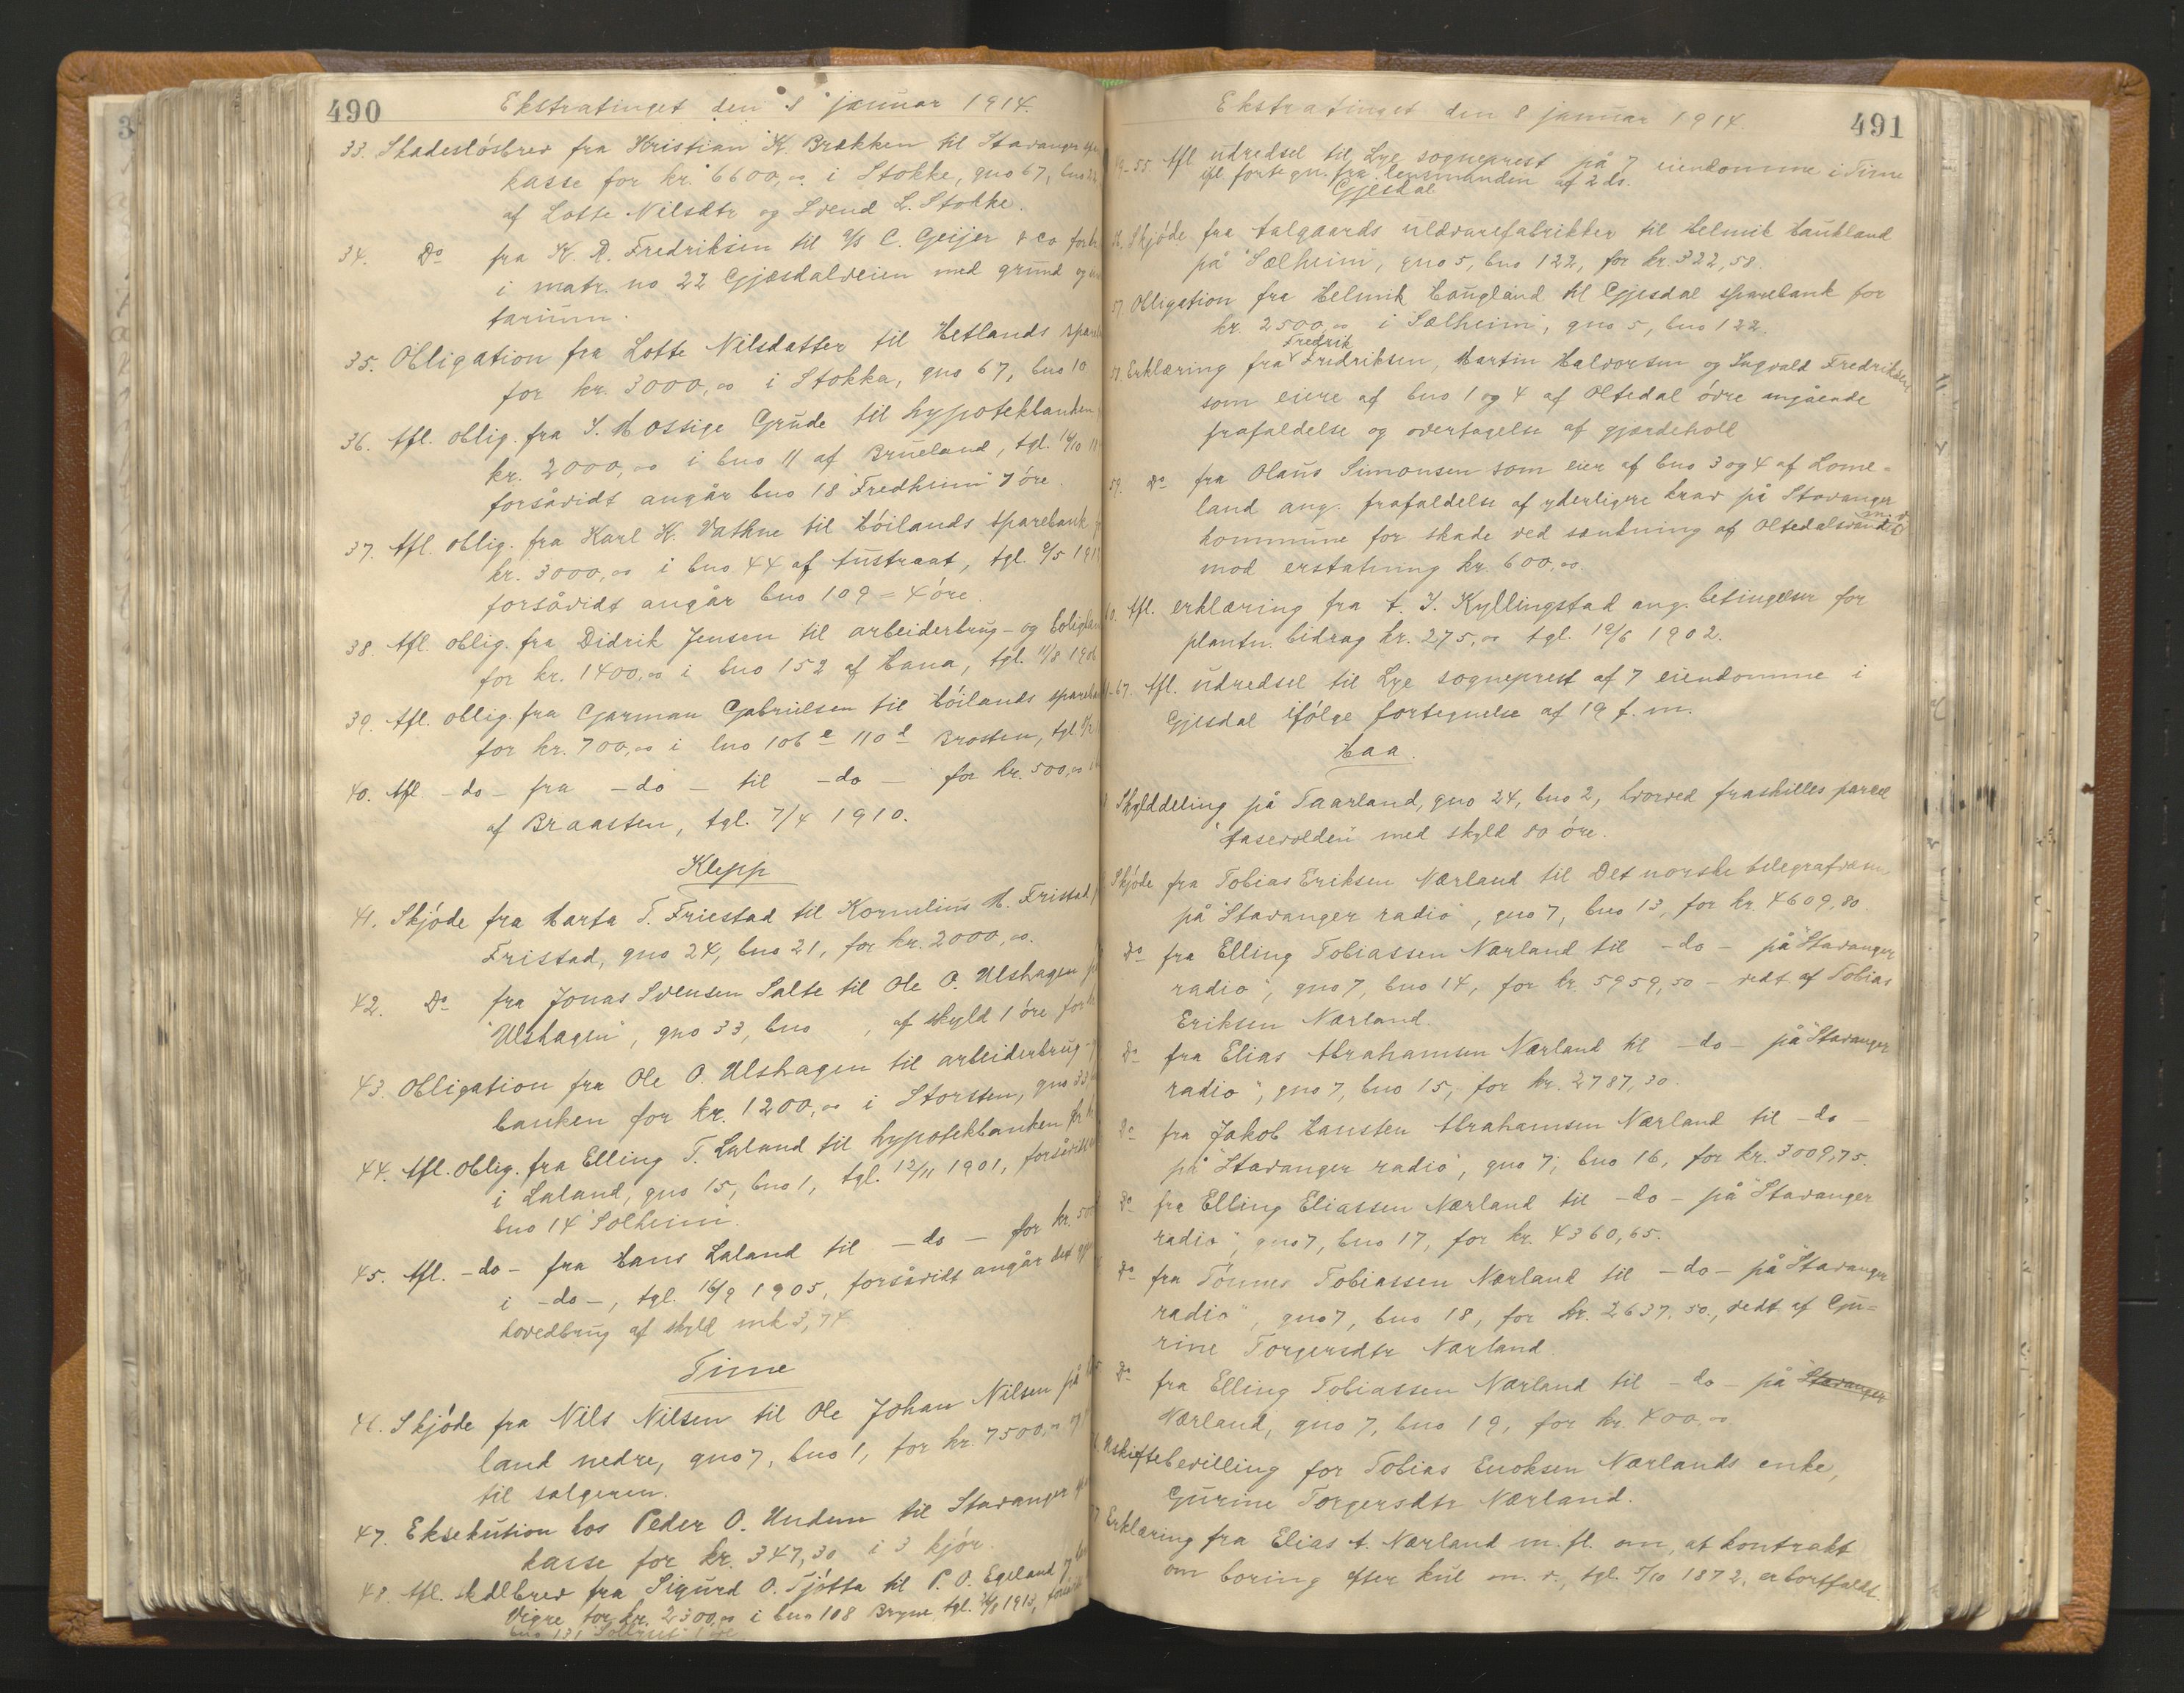 490
Ekstratinget den 8 januar 1914.
33. Skadesløsbrev fra Kristian K. Brekken til Stavanger
kasse for kr. 6600,00 i Stokke, gno 67, bno
af Lotte Nilsdtr og Svend L. Stokke.
34. Do fra K. R. Fredriksen til a/s C. Geijer & co for
i matr. no 22 Gjesdalveien med grund og
tarium.
35. Obligation fra Lotte Nilsdatter til Hetlands
for kr. 3000,00 i Stokka, gno 67, bno 10
36. Afl. oblig. fra S. Mossige Grude til hypotekbanken
kr. 2000,00 i bno 11 af Brueland, tgl. 14/10
forsåvidt angår bno 18 "Fredheim" 7 øre.
37. Afl. oblig. fra Karl K. Vathne til Høilands sparebank
kr. 3000,00 i bno 44 af Austraat, tgl.
forsåvidt angår bno 109 = 4 øre.
38. Afl. oblig. fra Didrik Jensen til arbeiderbrug- og
for kr. 1400,00 i bno 152 af Hana, tgl. 11/8
39. Afl. oblig. fra Garman Gabrielsen til Høilands
for kr. 700,00 i bno 106 e 110 d Brosten, tgl.
40. Afl. -do- fra -do- til -do- for kr. 500,00
af Braasten, tgl. 7/4 1910.
Klepp
41. Skjøde fra Marta T. Friestad til Kornelius M. Fristad
Fristad, gno 24, bno 21, for kr. 2000,00.
42. Do fra Jonas Svensen Salte til Ole O. Ulshagen
"Ulshagen", gno 33, bno , af skyld 1 øre for
43. Obligation fra Ole O. Ulshagen til arbeiderbrug-
banken for kr. 1200,00 i Storsten, gno 33,
44. Afl. oblig. fra Elling T. Laland til hypotekbanken
i Laland, gno 15, bno 1, tgl. 12/11 1901,
bno 14 "Solheim".
45. Afl. -do- fra Hans Laland til -do- for kr.
i -do-, tgl. 16/9 1905, forsåvidt angår det
hovedbrug af skyld mk 3,74
Time
46. Skjøde fra Nils Nilsen til Ole Johan Nilsen på
land nedre, gno 7, bno 1, for kr. 7500,00
til sælgeren.
47. Eksekution hos Peder O. Undem til Stavanger
kasse for kr. 347,30 i 3 kjør.
48. Afl. skdlbrev fra Sigurd O. Tjøtta til P. O. Egeland
Vigre for kr. 2300,00 i bno 108 Bryne, tgl. 1913,
bno 131
Ekstratinget den 8 januar 1914.
491
-55. Afl. udredsel til Lye sogneprest på 7 eiendomme i Time
ifl. fortegn. fra lensmanden af 2 ds.
Gjesdal
Skjøde fra Aalgaards uldvarefabrikker til Helmik Haukland
på "Sælheim", gno 5, bno 122, for kr. 322,58.
57. Obligation fra Helmik Haugland til Gjesdal sparebank for
kr. 2500,00 i "Sælheim", gno 5, bno 122.
58. Erklæring fra Fredrik Fredriksen, Martin Halvorsen og Ingvald Fredriksen
som eiere af bno 1 og 4 af Oltedal øvre angående
frafaldelse og overtagelse af gjærdehold
59. Do fra Olaus Simonsen som eier af bno 3 og 4 af Lome-
land ang. frafaldelse af yderligere krav på Stavanger
kommune for skade ved sænkning af Oltedalsvand m. v.
mod erstatning kr. 600,00.
60. Afl. erklæring fra A. S. Kyllingstad ang. betingelser for
plantn. bidrag kr. 275,00 tgl. 19/6 1902.
-67. Afl. udredsel til Lye sogneprest af 7 eiendomme i
Gjesdal ifølge fortegnelse af 19 f. m.
Haa.
Skylddeling på Taarland, gno 24, bno 2, hvorved fraskilles parcel
"Aasevolden" med skyld 80 øre.
Skjøde fra Tobias Eriksen Nærland til Det norske telegrafvæsen
på "Stavanger radio", gno 7, bno 13, for kr. 4609,80.
Do fra Elling Tobiassen Nærland til -do- på "Stavanger
radio", gno 7, bno 14, for kr. 5959,50 - vedt. af Tobias
Eriksen Nærland.
Do fra Elias Abrahamsen Nærland til -do- på "Stavanger
radio", gno 7, bno 15, for kr. 2787,30.
Do fra Jakob Hansten Abrahamsen Nærland til -do-
på "Stavanger radio", gno 7, bno 16, for kr. 3009,75.
Do fra Elling Eliassen Nærland til -do- på "Stavanger
radio", gno 7, bno 17, for kr. 4360,65.
Do fra Tønnes Tobiassen Nærland til -do- på "Stavanger
radio", gno 7, bno 18, for kr. 2637,50, vedt. af Gu-
rine Torgersdtr Nærland.
Do fra Elling Tobiassen Nærland til -do- på "Stavanger
Nærland, gno 7, bno 19, for kr. 400,00
Uskiftebevilling for Tobias Enoksen Nærlands enke,
Gurine Torgersdtr Nærland.
Erklæring fra Elias A. Nærland m. fl. om, at kontrakt
om boring efter kul m. v., tgl. 5/10 1872, er bortfaldt.